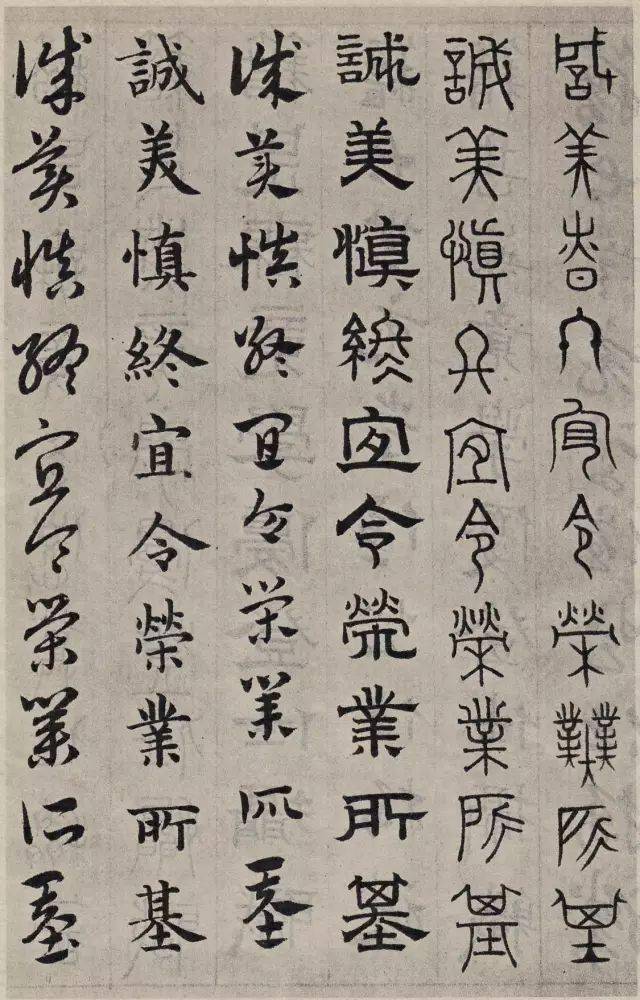 誠美慎終宜令榮業所基
誠美慎終宜令榮業所基
誠美慎終宜令榮業所基
誠美慎終宜令榮業所基
誠美慎終宜令榮業所基
誠美慎終宜令榮業所基